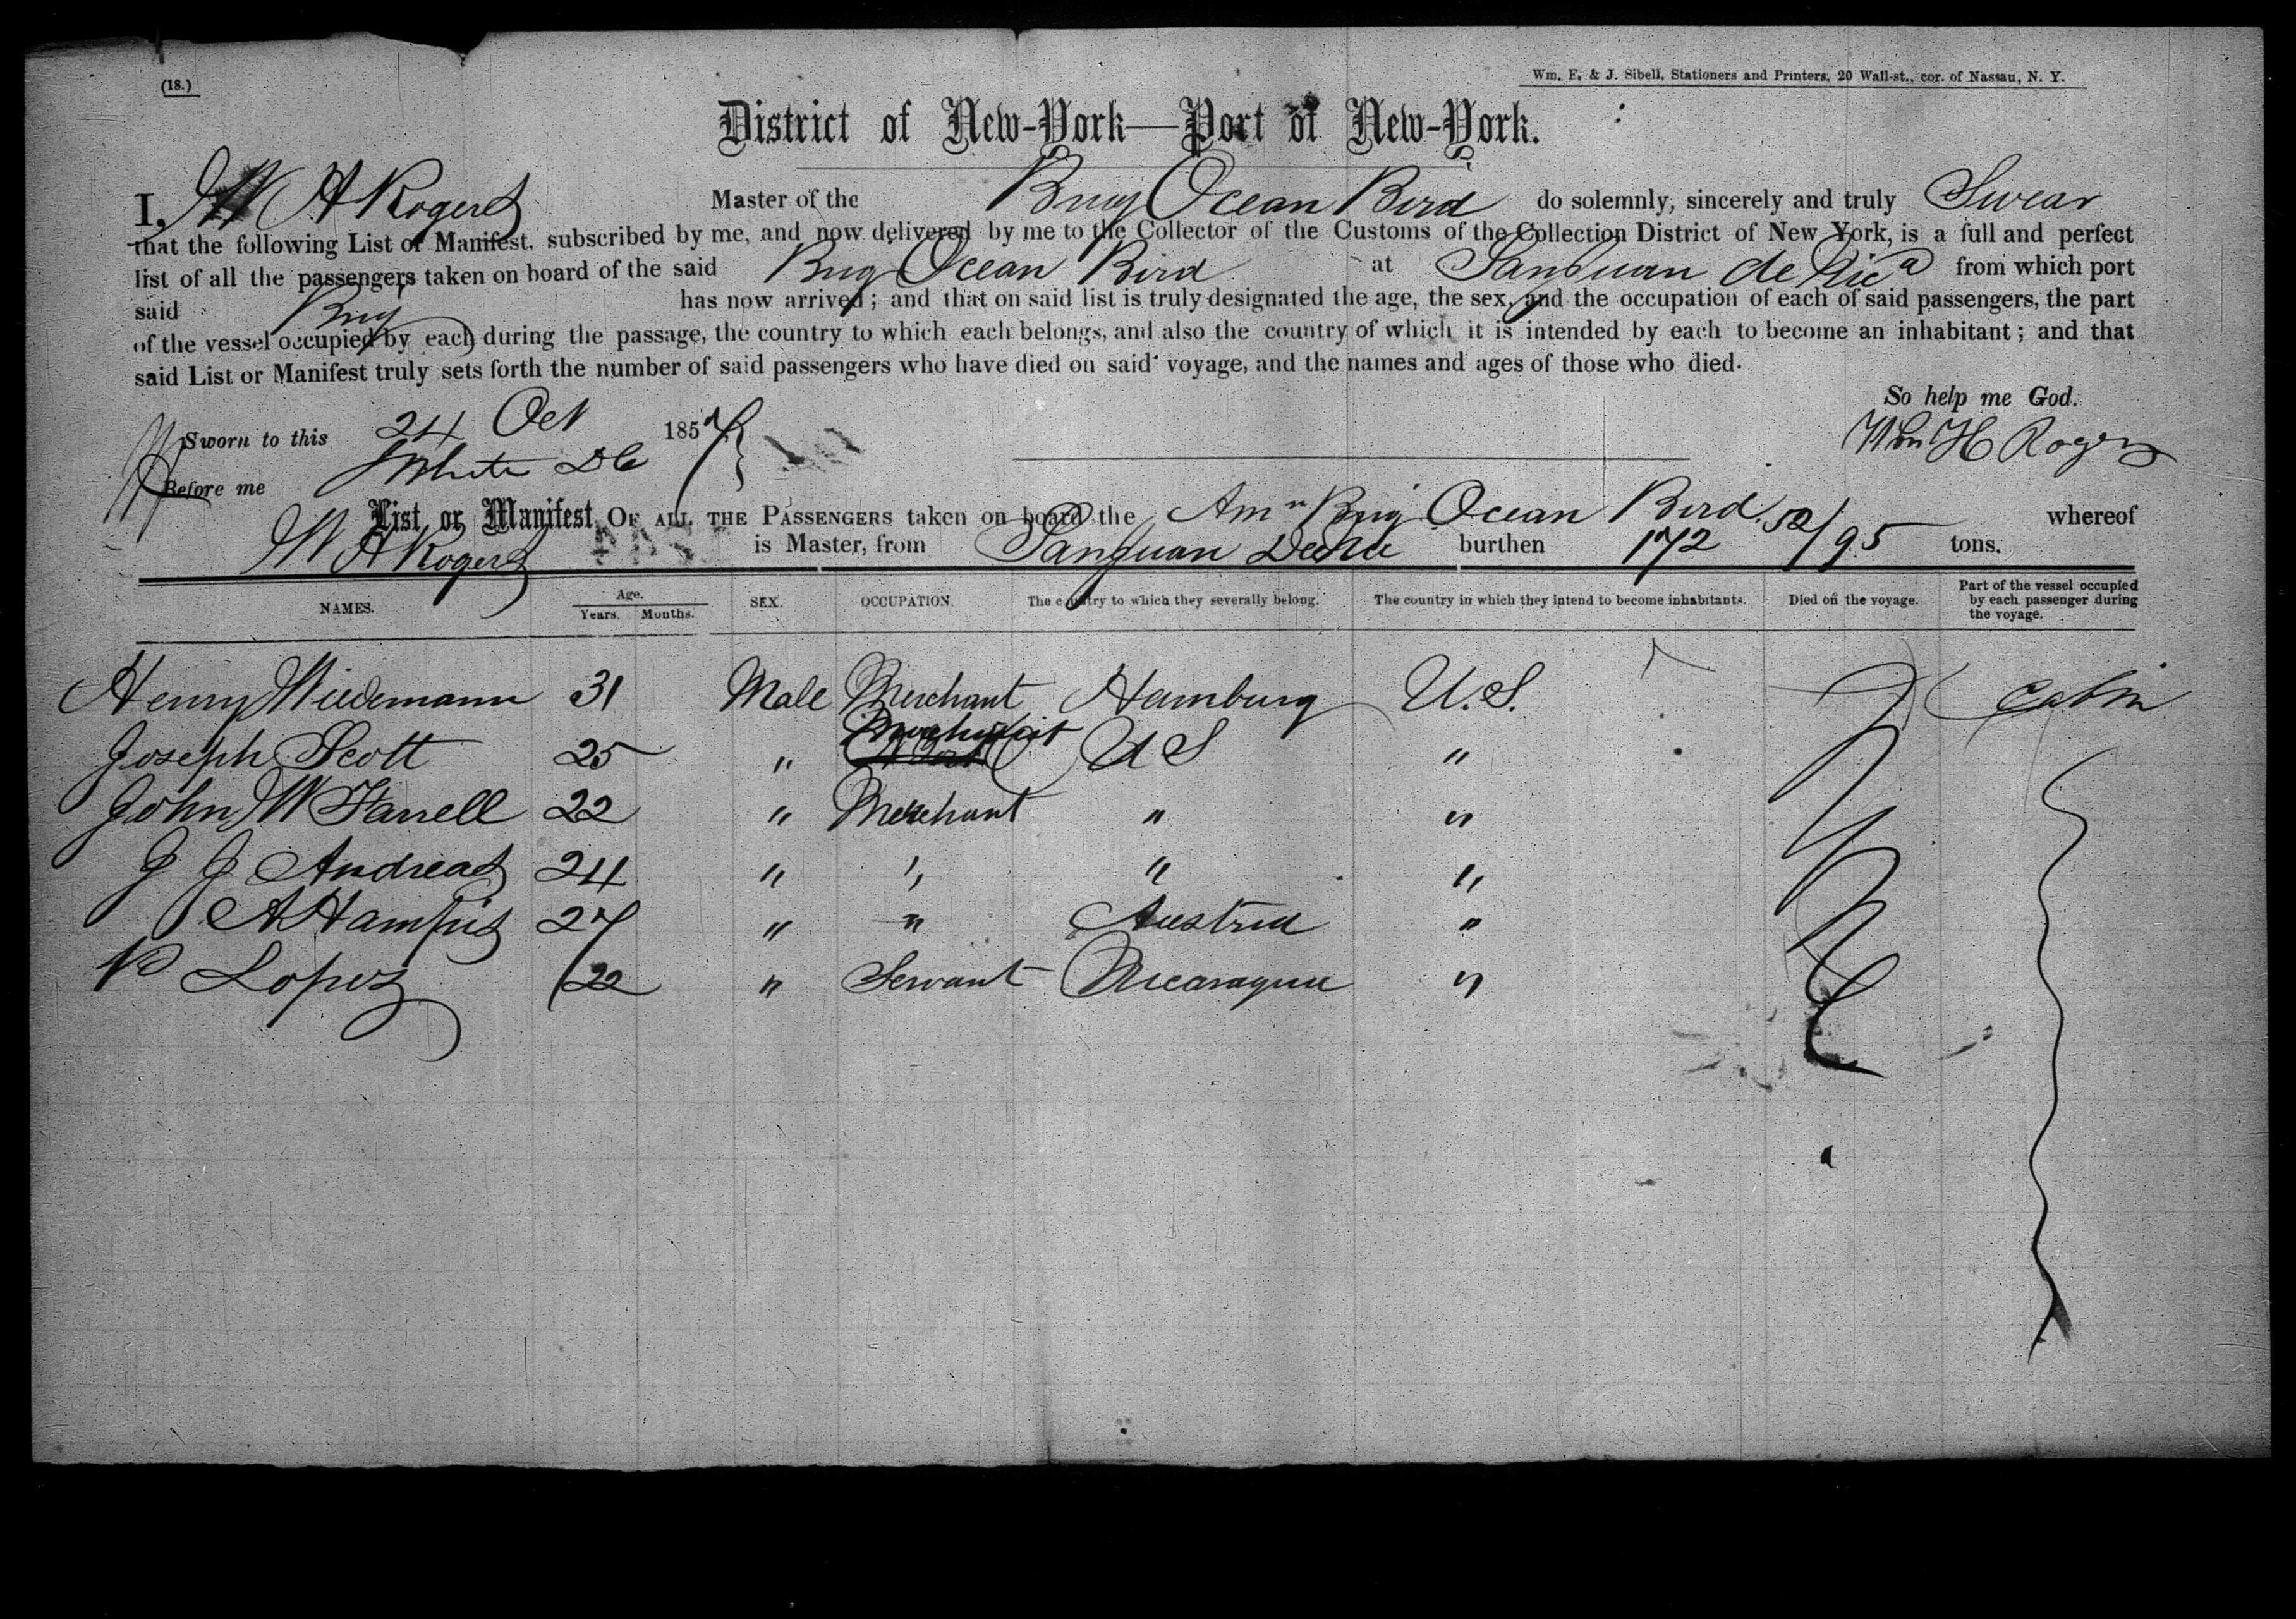 (18.)
Wm. E. & J. Sibell, Stationers and Printers, 20 Wall-st., cor. of Nassau, N. Y.
District of New-York—Port of New-York.
I, W H Rogers Master of the Brig Ocean Bird do solemnly, sincerely and truly Swear
that the following List or Manifest, subscribed by me, and now delivered by me to the Collector of the Customs of the Collection District of New York, is a full and perfect
list of all the passengers taken on board of the said Brig Ocean Bird at San Juan de Nica from which port
said Brig has now arrived; and that on said list is truly designated the age, the sex, and the occupation of each of said passengers, the part
of the vessel occupied by each during the passage, the country to which each belongs, and also the country of which it is intended by each to become an inhabitant; and that
said List or Manifest truly sets forth the number of said passengers who have died on said voyage, and the names and ages of those who died.
So help me God.
Sworn to this 24 Oct 1857
Wm H Rogers
Before me White DC
List or Manifest OF ALL THE PASSENGERS taken on board the Amn Brig Ocean Bird whereof
W H Rogers is Master, from San Juan De Nic burthen 172 52/95 tons.
NAMES. Age. Years. Months. SEX. OCCUPATION. The country to which they severally belong. The country in which they intend to become inhabitants. Died on the voyage. Part of the vessel occupied by each passenger during the voyage.
Henry Wiedemann 31 Male Merchant Hamburg U.S. Cabin
Joseph Scott 25 " Merchant U S "
John W Farrell 22 " Merchant " "
J J Andreas 24 " " " "
A 27 " " Austria "
P Lopez 22 " Servant Nicaragua "